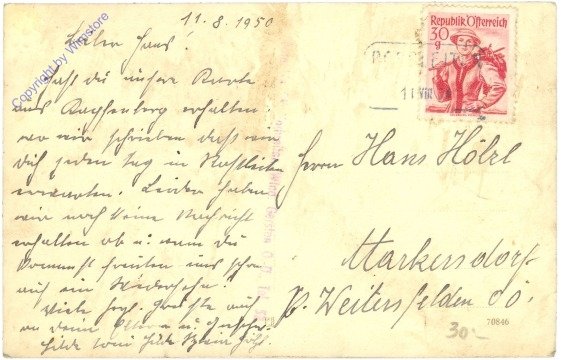 11.8.1950
Lieber Hans!
Hast du unsere Karte
aus Kapfenberg erhalten.
wo wir schreiben dass wir
dich jeden Tag in
erwarten. Leider haben
wir noch keine Nachricht
erhalten ob u. wann du
kommst freuen uns schon
auf ein Wiedersehn.
Viele herzl. Grüsse auch
an deine Eltern u.
Hilde
Republik Österreich
30
g
Herrn Hans Hölzl
Markersdorf
P. Weitersfelden O.Ö.
30.-
70846
Copyright by Wiastore